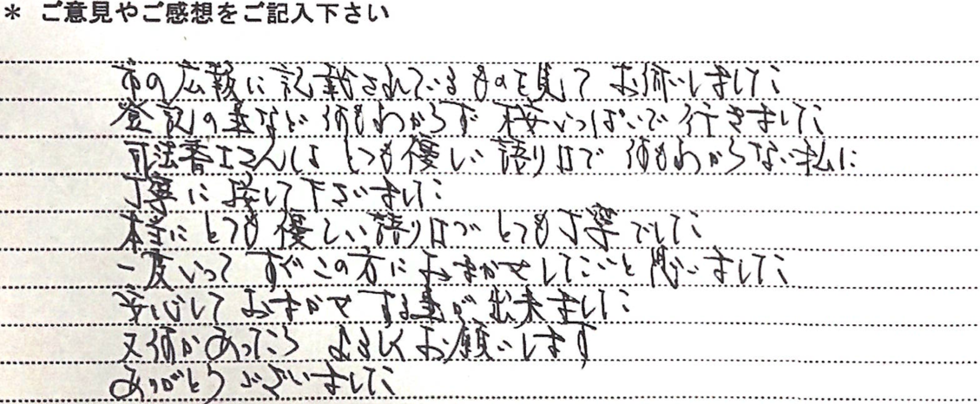 ＊ ご意見やご感想をご記入下さい
市の広報に記載されているものを見て お伺いしました
登記の事など 何もわからず 不安いっぱいで 行きました
司法書士さんは とても優しい 語り口で 何もわからない私に
丁寧に 接して下さいました
本当に とても 優しい語り口で とても丁寧でした
一度いって すぐこの方に おまかせしたいと 思いました
安心して おまかせ する事が 出来ました
又何かあったら よろしくお願いします
ありがとうございました